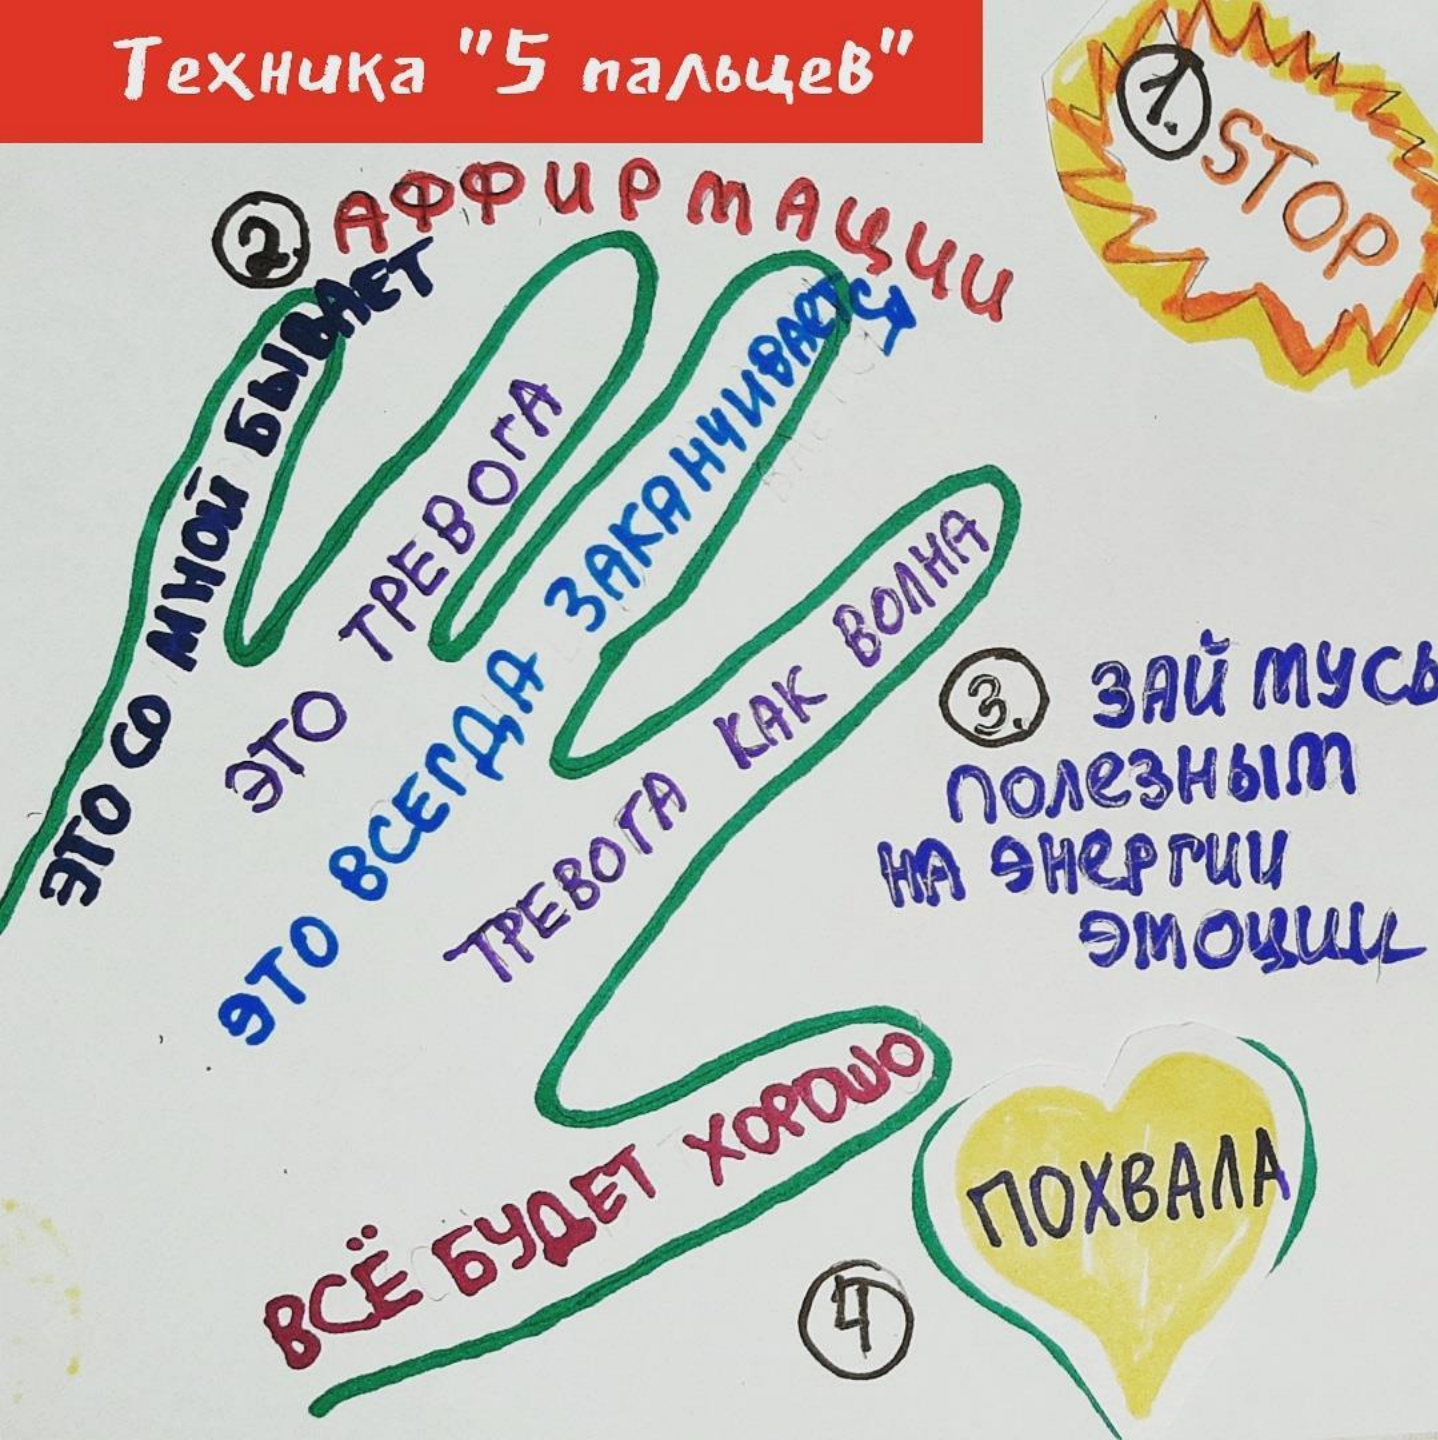 Техника "5 пальцев"
1. STOP
2. АФФИРМАЦИИ
ЭТО СО МНОЙ БЫВАЕТ
ЭТО ТРЕВОГА
ЭТО ВСЕГДА ЗАКАНЧИВАЕТСЯ
ТРЕВОГА КАК ВОЛНА
ВСЁ БУДЕТ ХОРОШО
3. ЗАЙМУСЬ
ПОЛЕЗНЫМ
НА ЭНЕРГИИ
ЭМОЦИИ
4
ПОХВАЛА